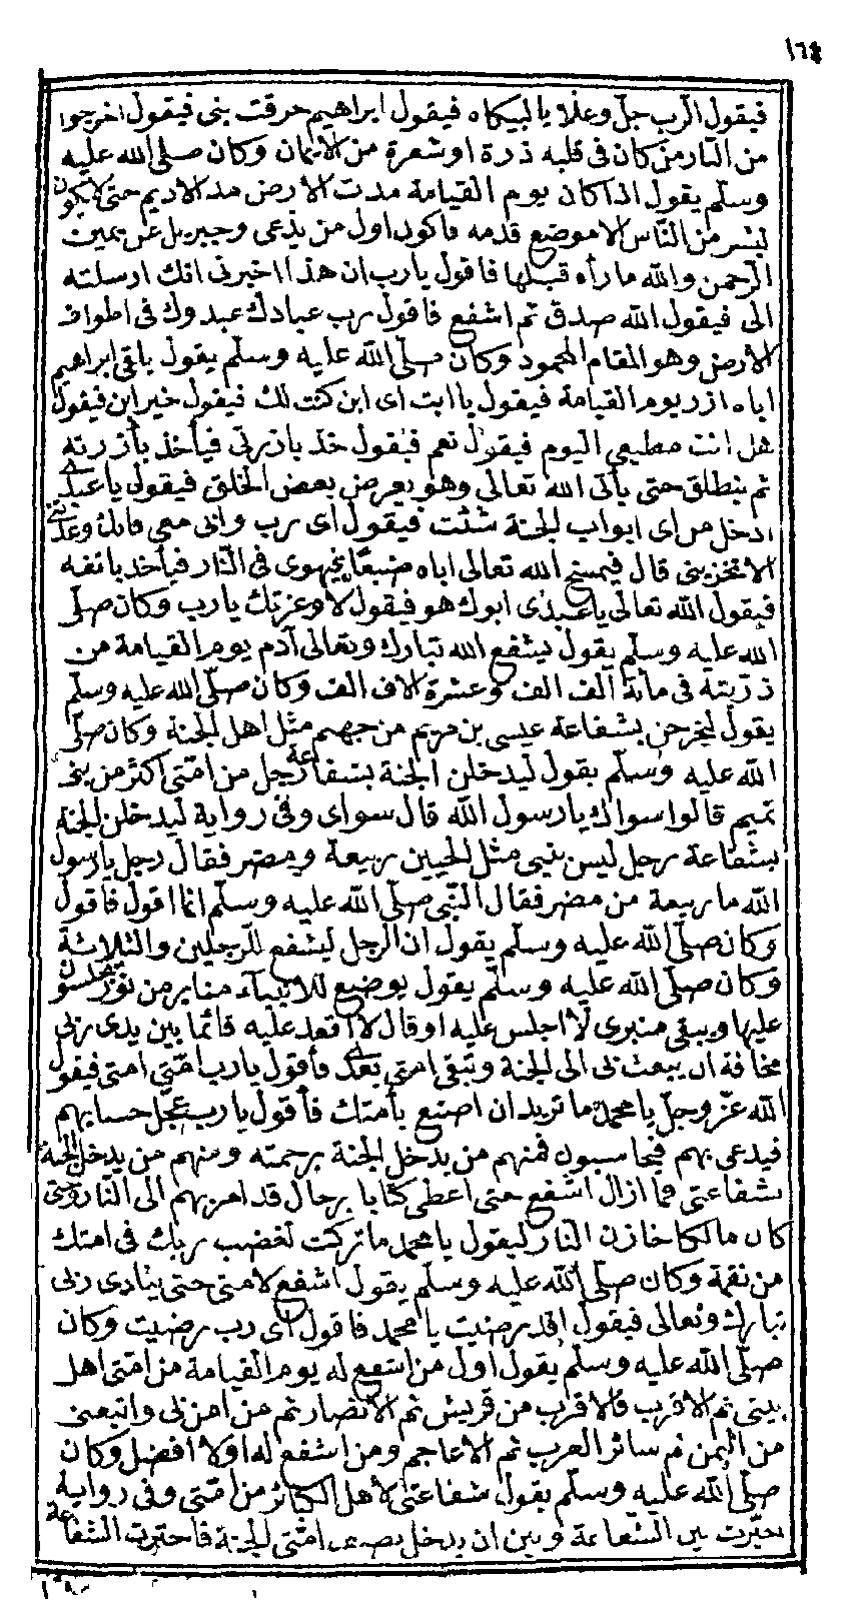 ١٦٤
فيقول الرب جل وعلا يا لبيكاه فيقول ابراهيم حرقت بني فيقول اخرجوا
من النار من كان في قلبه ذرة او شعرة من الايمان وكان صلى الله عليه
وسلم يقول اذا كان يوم القيامة مدت الارض مد الاديم حتى لا يكون
لبشر من الناس الا موضع قدمه فاكون اول من يدعى وجبريل عن يمين
الرحمن والله ما رأه قبلها فاقول يا رب ان هذا اخبرني انك ارسلته
الي فيقول الله صدق ثم اشفع فاقول رب عبادك عبدوك في اطراف
الارض وهو المقام المحمود وكان صلى الله عليه وسلم يقول يلقى ابراهيم
اباه ازر يوم القيامة فيقول يا ابت اي ابن كنت لك فيقول خير ابن فيقول
هل انت مطيعي اليوم فيقول نعم فيقول خذ بازرتي فيأخذ بأزرته
ثم ينطلق حتى يأتي الله تعالى وهو يعرض بعض الخلق فيقول يا عبدي
ادخل من اي ابواب الجنة شئت فيقول اي رب وابي معي فانك وعدتني
الا تخزيني قال فيمسخ الله تعالى اباه ضبعا فيهوي في النار فيأخذ بانفه
فيقول الله تعالى يا عبدي ابوك هو فيقول لا وعزتك يا رب وكان صلى
الله عليه وسلم يقول يشفع الله تبارك وتعالى آدم يوم القيامة من
ذريته في مائة الف الف وعشرة الاف الف وكان صلى الله عليه وسلم
يقول ليخرجن بشفاعة عيسى بن مريم من جهنم مثل اهل الجنة وكان صلى
الله عليه وسلم يقول ليدخلن الجنة بشفاعة رجل من امتي اكثر من بني
تميم قالوا سواك يا رسول الله قال سواي وفي رواية ليدخلن الجنة
بشفاعة رجل ليس بنبي مثل الحيين ربيعة ومضر فقال رجل يا رسول
الله ما ربيعة من مضر فقال النبي صلى الله عليه وسلم انما اقول فاقول
وكان صلى الله عليه وسلم يقول ان الرجل ليشفع للرجلين والثلاثة
وكان صلى الله عليه وسلم يقول يوضع للانبياء منابر من نور يجلسون
عليها ويبقى منبري لا اجلس عليه او قال لا اقعد عليه قائما بين يدي ربي
مخافة ان يبعث بي الى الجنة وتبقى امتي بعدي فأقول يا رب امتي امتي فيقول
الله عز وجل يا محمد ما تريد ان اصنع بأمتك فأقول يا رب عجل حسابهم
فيدعى بهم فيحاسبون فمنهم من يدخل الجنة برحمته ومنهم من يدخل الجنة
بشفاعتي فما ازال اشفع حتى اعطى كتابا برجال قد امر بهم الى النار وحتى
كان مالكا خازن النار ليقول يا محمد ما تركت لغضب ربك في امتك
من نقمة وكان صلى الله عليه وسلم يقول اشفع لامتي حتى ينادي ربي
تبارك وتعالى فيقول اقد رضيت يا محمد فاقول اي رب رضيت وكان
صلى الله عليه وسلم يقول اول من اشفع له يوم القيامة من امتي اهل
بيتي ثم الاقرب فالاقرب من قريش ثم الانصار ثم من امن بي واتبعني
من اليمن ثم سائر العرب ثم الاعاجم ومن اشفع له اولا افضل وكان
صلى الله عليه وسلم يقول شفاعتي لاهل الكبائر من امتي وفي رواية
خيرت بين الشفاعة وبين ان يدخل نصف امتي الجنة فاخترت الشفاعة